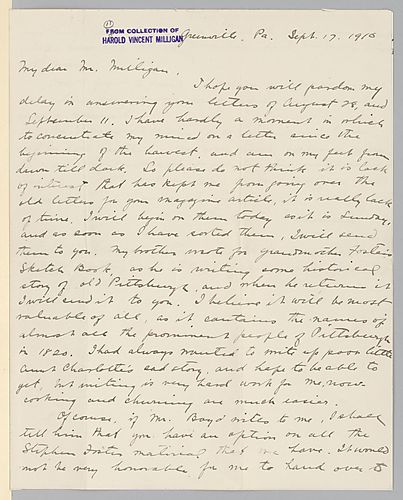 FROM COLLECTION OF
HAROLD VINCENT MILLIGAN
Greenville, Pa. Sept. 17, 1916
My dear Mr. Milligan,
I hope you will pardon my
delay in answering your letters of August 28, and
September 11. I have hardly a moment in which
to concentrate my mind on a letter since the
beginning of the harvest, and am on my feet from
dawn till dark. So please do not think it is lack
of interest that has kept me from going over the
old letters for your magazine article, it is really lack
of time. I will begin on them today as it is Sunday,
and as soon as I have sorted them, I will send
them to you. My brother wrote for grandmother Foster's
Sketch Book, as he is writing some historical
story of old Pittsburgh, and when he returns it
I will send it to you. I believe it will be most
valuable of all, as it contains the names of
almost all the prominent people of Pittsburgh
in 1820. I had always wanted to write up poor little
aunt Charlotte's sad story, and hope to be able to
yet, but writing is very hard work for me, now
cooking and churning are much easier.
Of course, if Mr. Boyd writes to me, I shall
tell him that you have an option on all the
Stephen Foster material that we have. It would
not be very honorable for me to hand over to